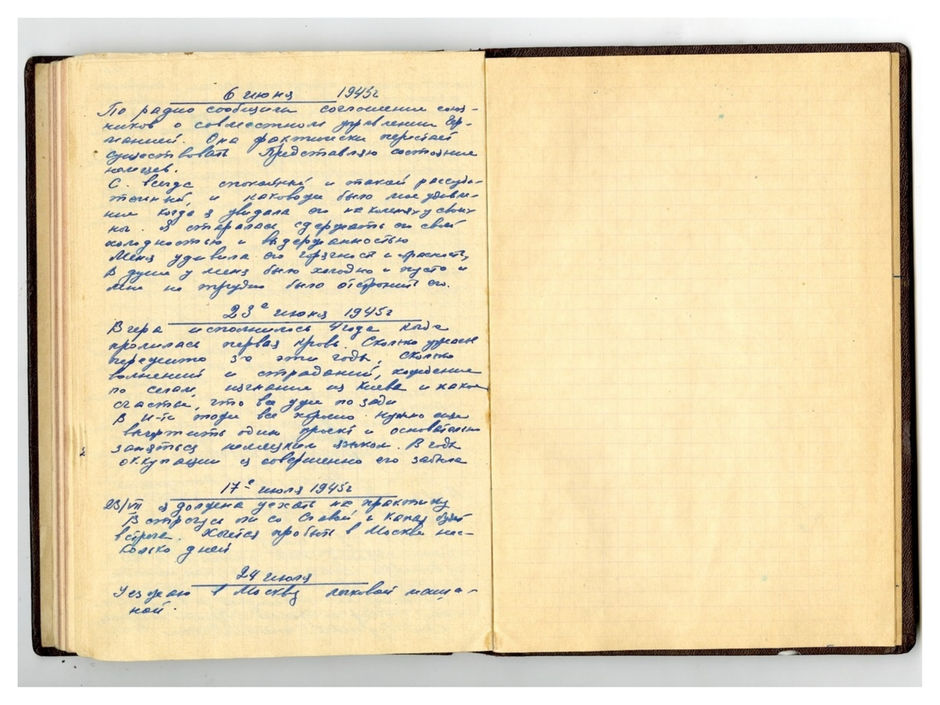 6 июня 1945г
По радио сообщили соглашение союз-
ников о совместном управлении Гер-
манией. Она фактически перестает
существовать Представляю состояние
немцев.
С. всегда спокойный и такой рассуди-
тельный, и каково было мое удивле-
ние когда я увидала его на коленях у своих
ног. Я старалась сдержать его своей
холодностью и выдержанностью
Меня удивила его горячность и
В душе у меня было холодно и пусто и
мне не трудно было отстранить его.
23го июня 1945г
Вчера исполнилось 4 года когда
пролилась первая кровь. Сколько
пережито за эти годы, сколько
волнений и страданий, хождение
по селам, изгнание из Киева и какое
счастье, что все уже позади
В И-те тоже все хорошо. Нужно еще
вычертить один проект и основательно
заняться немецким языком. В годы
оккупации я совершенно его забыла
17го июля 1945г
23/VII я должна уехать на практику
Встречусь ли со Славой и какая будет
встреча. Хочется пробыть в Москве нес-
колько дней
24 июля
Уезжаю в Москву легковой маши-
ной.